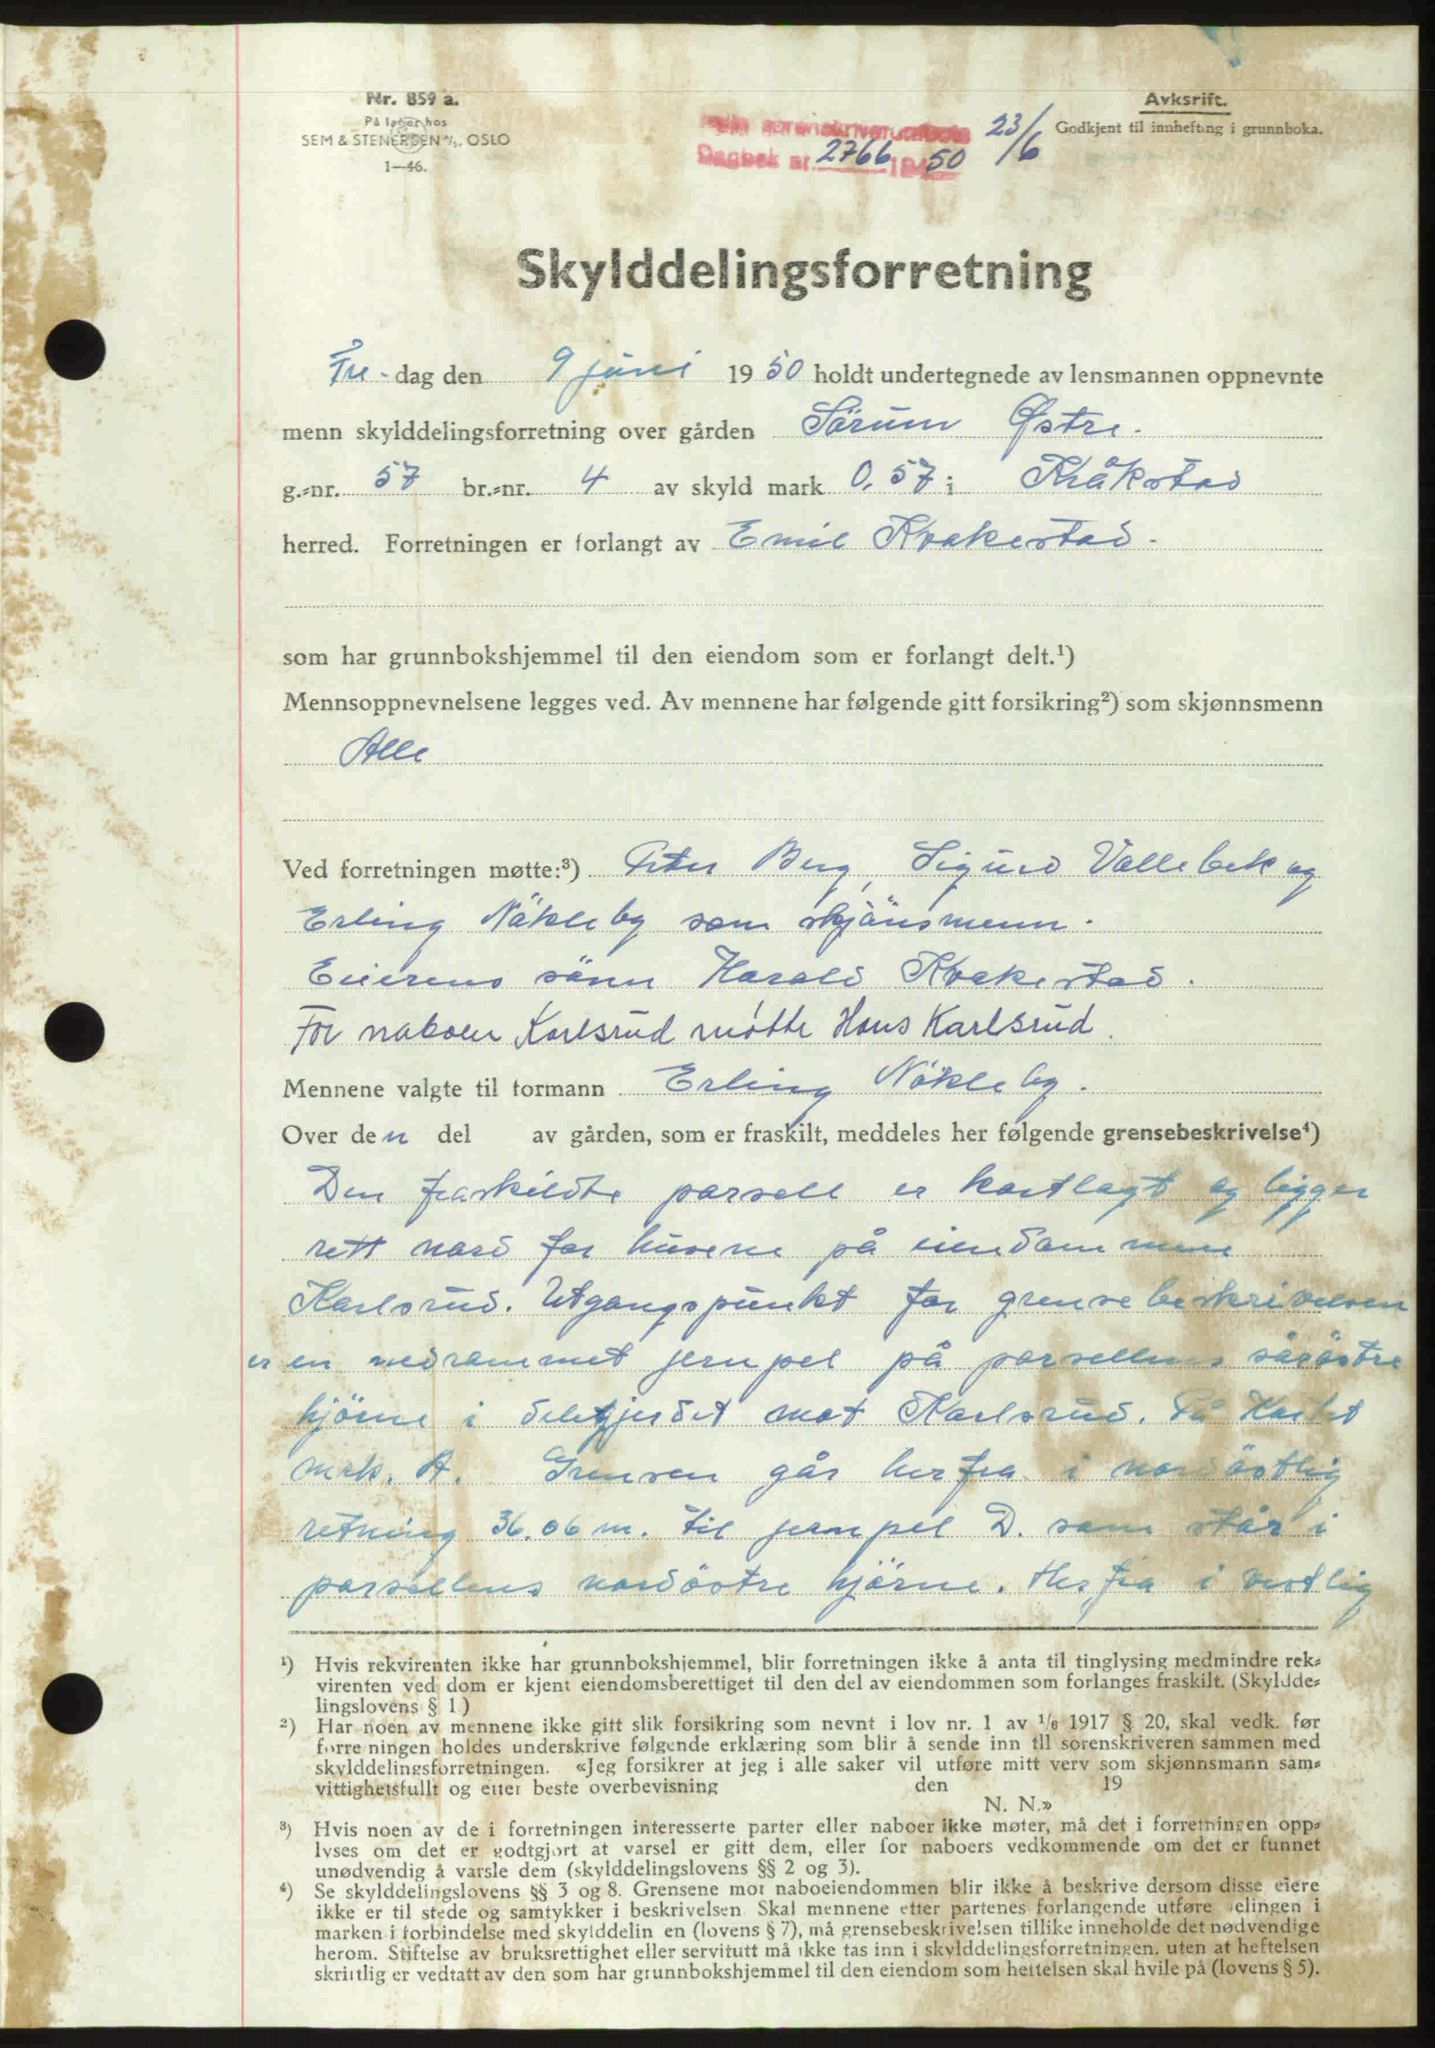 Nr. 859 a.
På lager hos
SEM & STENERSEN A/S, OSLO
1—46.
Avksrift.
Godkjent til innhefting i grunnboka.
sorenskriverembete
Dagbok nr. 2766 1950 23/6
Skylddelingsforretning
Fre- dag den 9 juni 1950 holdt undertegnede av lensmannen oppnevnte
menn skylddelingsforretning over gården Sörum Østre.
g.-nr. 57 br.-nr. 4 av skyld mark 0,57 i Kråkstad
herred. Forretningen er forlangt av Emil Kvakestad.
som har grunnbokshjemmel til den eiendom som er forlangt delt.¹)
Mennsoppnevnelsene legges ved. Av mennene har følgende gitt forsikring²) som skjønnsmenn
Alle
Ved forretningen møtte:³) Peter Berg, Sigurd Vallebek og
Erling Nökleby som skjönsmenn.
Eierens sönn Harald Kvakestad.
For naboen Karlsrud møtte Hans Karlsrud.
Mennene valgte til formann Erling Nökleby.
Over den del av gården, som er fraskilt, meddeles her følgende grensebeskrivelse⁴)
Den fraskildte parsell er kartlagt og ligger
rett nord for husene på eiendommene
Karlsrud. Utgangspunkt for grensebeskrivelsen
er en nedrammet jernpel på parsellens södöstre
hjörne i delegjerdet mot Karlsrud. På Kartet
mrk. A. Grensen går herfra i nordöstlig
retning 36.06 m. til jernpel D. som står i
parsellens nordöstre hjörne. Herfra i vestlig
¹) Hvis rekvirenten ikke har grunnbokshjemmel, blir forretningen ikke å anta til tinglysing medmindre rek-
virenten ved dom er kjent eiendomsberettiget til den del av eiendommen som forlanges fraskilt. (Skyldde-
lingslovens § 1.)
²) Har noen av mennene ikke gitt slik forsikring som nevnt i lov nr. 1 av 1/6 1917 § 20, skal vedk. før
forretningen holdes underskrive følgende erklæring som blir å sende inn til sorenskriveren sammen med
skylddelingsforretningen. «Jeg forsikrer at jeg i alle saker vil utføre mitt verv som skjønnsmann sam-
vittighetsfullt og etter beste overbevisning den 19
N. N.»
³) Hvis noen av de i forretningen interesserte parter eller naboer ikke møter, må det i forretningen opp-
lyses om det er godtgjort at varsel er gitt dem, eller for naboers vedkommende om det er funnet
unødvendig å varsle dem (skylddelingslovens §§ 2 og 3).
⁴) Se skylddelingslovens §§ 3 og 8. Grensene mot naboeiendommen blir ikke å beskrive dersom disse eiere
ikke er til stede og samtykker i beskrivelsen. Skal mennene etter partenes forlangende utføre delingen i
marken i forbindelse med skylddelingen (lovens § 7), må grensebeskrivelsen tillike inneholde det nødvendige
herom. Stiftelse av bruksrettighet eller servitutt må ikke tas inn i skylddelingsforretningen, uten at heftelsen
skriftlig er vedtatt av den som har grunnbokshjemmel til den eiendom som heftelsen skal hvile på (lovens § 5).